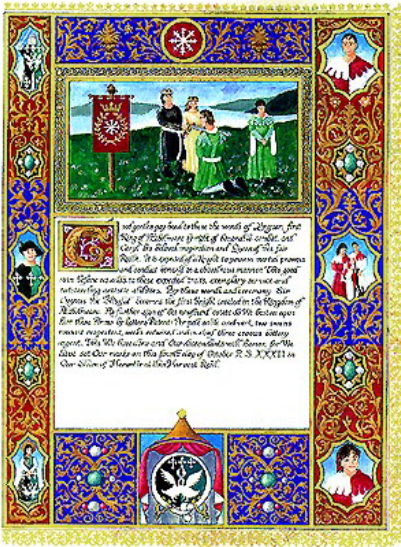 gentles pay heed to these the words of first
King of Æthelmearc by right of combat, and
his beloved inspiration and Queen of this fair
Realm. It is expected of a Knight to possess martial prowess
and conduct himself in a chivalrous manner. Take good
note before us these expected traits, exemplary service and
outstanding artistic abilities. By these words and ceremony, Sir
Cygnus, the becomes the first knight created in the Kingdom of
Æthelmearc. By further sign of our profound esteem do We bestow upon
him these Arms by letters Patent: Per pale sable and vert, two swans
rousant respectant, necks entwined, and in chief three crosses bottony
argent. This We have done and Our descendants will honor, for We
have set Our marks on this fourth day of October A.S. XXXII in
Our Shire of at this Harvest Raid.